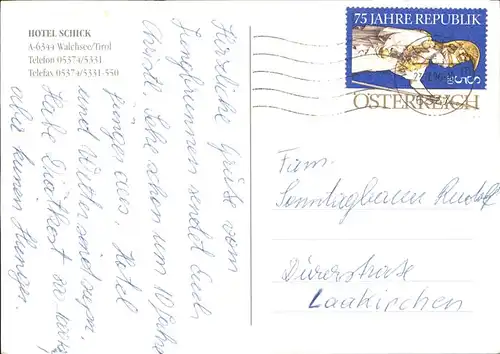 HOTEL SCHICK
A-6344 Walchsee/Tirol
Telefon 05374/5331
Telefax 05374/5331-550
75 JAHRE REPUBLIK
ÖSTERREICH
Herzliche Grüße vom
Jungbrunnen sendet Euch
Christl. Sehe schon um 10 Jahre
jünger aus. Hotel
und Wetter sind super.
Habe Diätkost 
aber keinen Hunger.
Fam.
Sonntagbauer Rudolf
Dürerstraße
Laakirchen